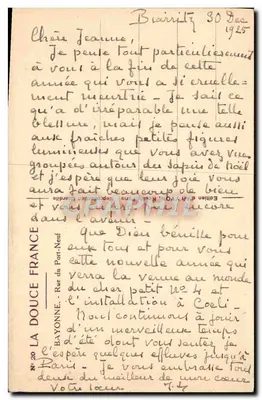 Biarritz 30 Dec
1925
Chère Jeanne,
Je pense tout particulièrement
à vous à la fin de cette
année qui vous a si cruelle-
ment meurtrie. Je sais ce
qu'a d'irréparable une telle
blessure, mais je pense aussi
aux fraîches petites figures
lumineuses que vous avez vues
groupées autour du sapin de Noël
et j'espère que leur joie vous
aura fait beaucoup de bien
et vous en fera encore
dans l'avenir.
Que Dieu bénisse pour
eux tous et pour vous
cette nouvelle année qui
verra la venue au monde
du cher petit No 4 et
l'installation à
Nous continuons à jouir
d'un merveilleux temps
d'été dont vous sentez je
l'espère quelques effluves jusqu'à
Paris. Je vous embrasse tous
deux du meilleur de mon cœur
Votre sœur
LA DOUCE FRANCE
BAYONNE. - Rue du Port-Neuf